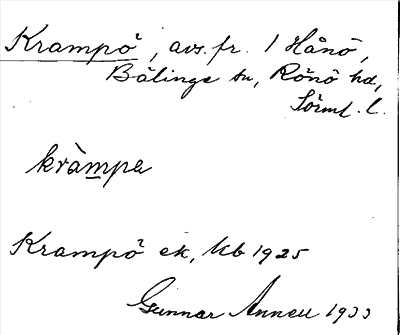 Krampö, avs. fr. 1 Hånö,
Bälinge sn, Rönö hd,
Sörml. l.
kràmpa
Krampö ek, Ub 1925
Gunnar Annell 1933